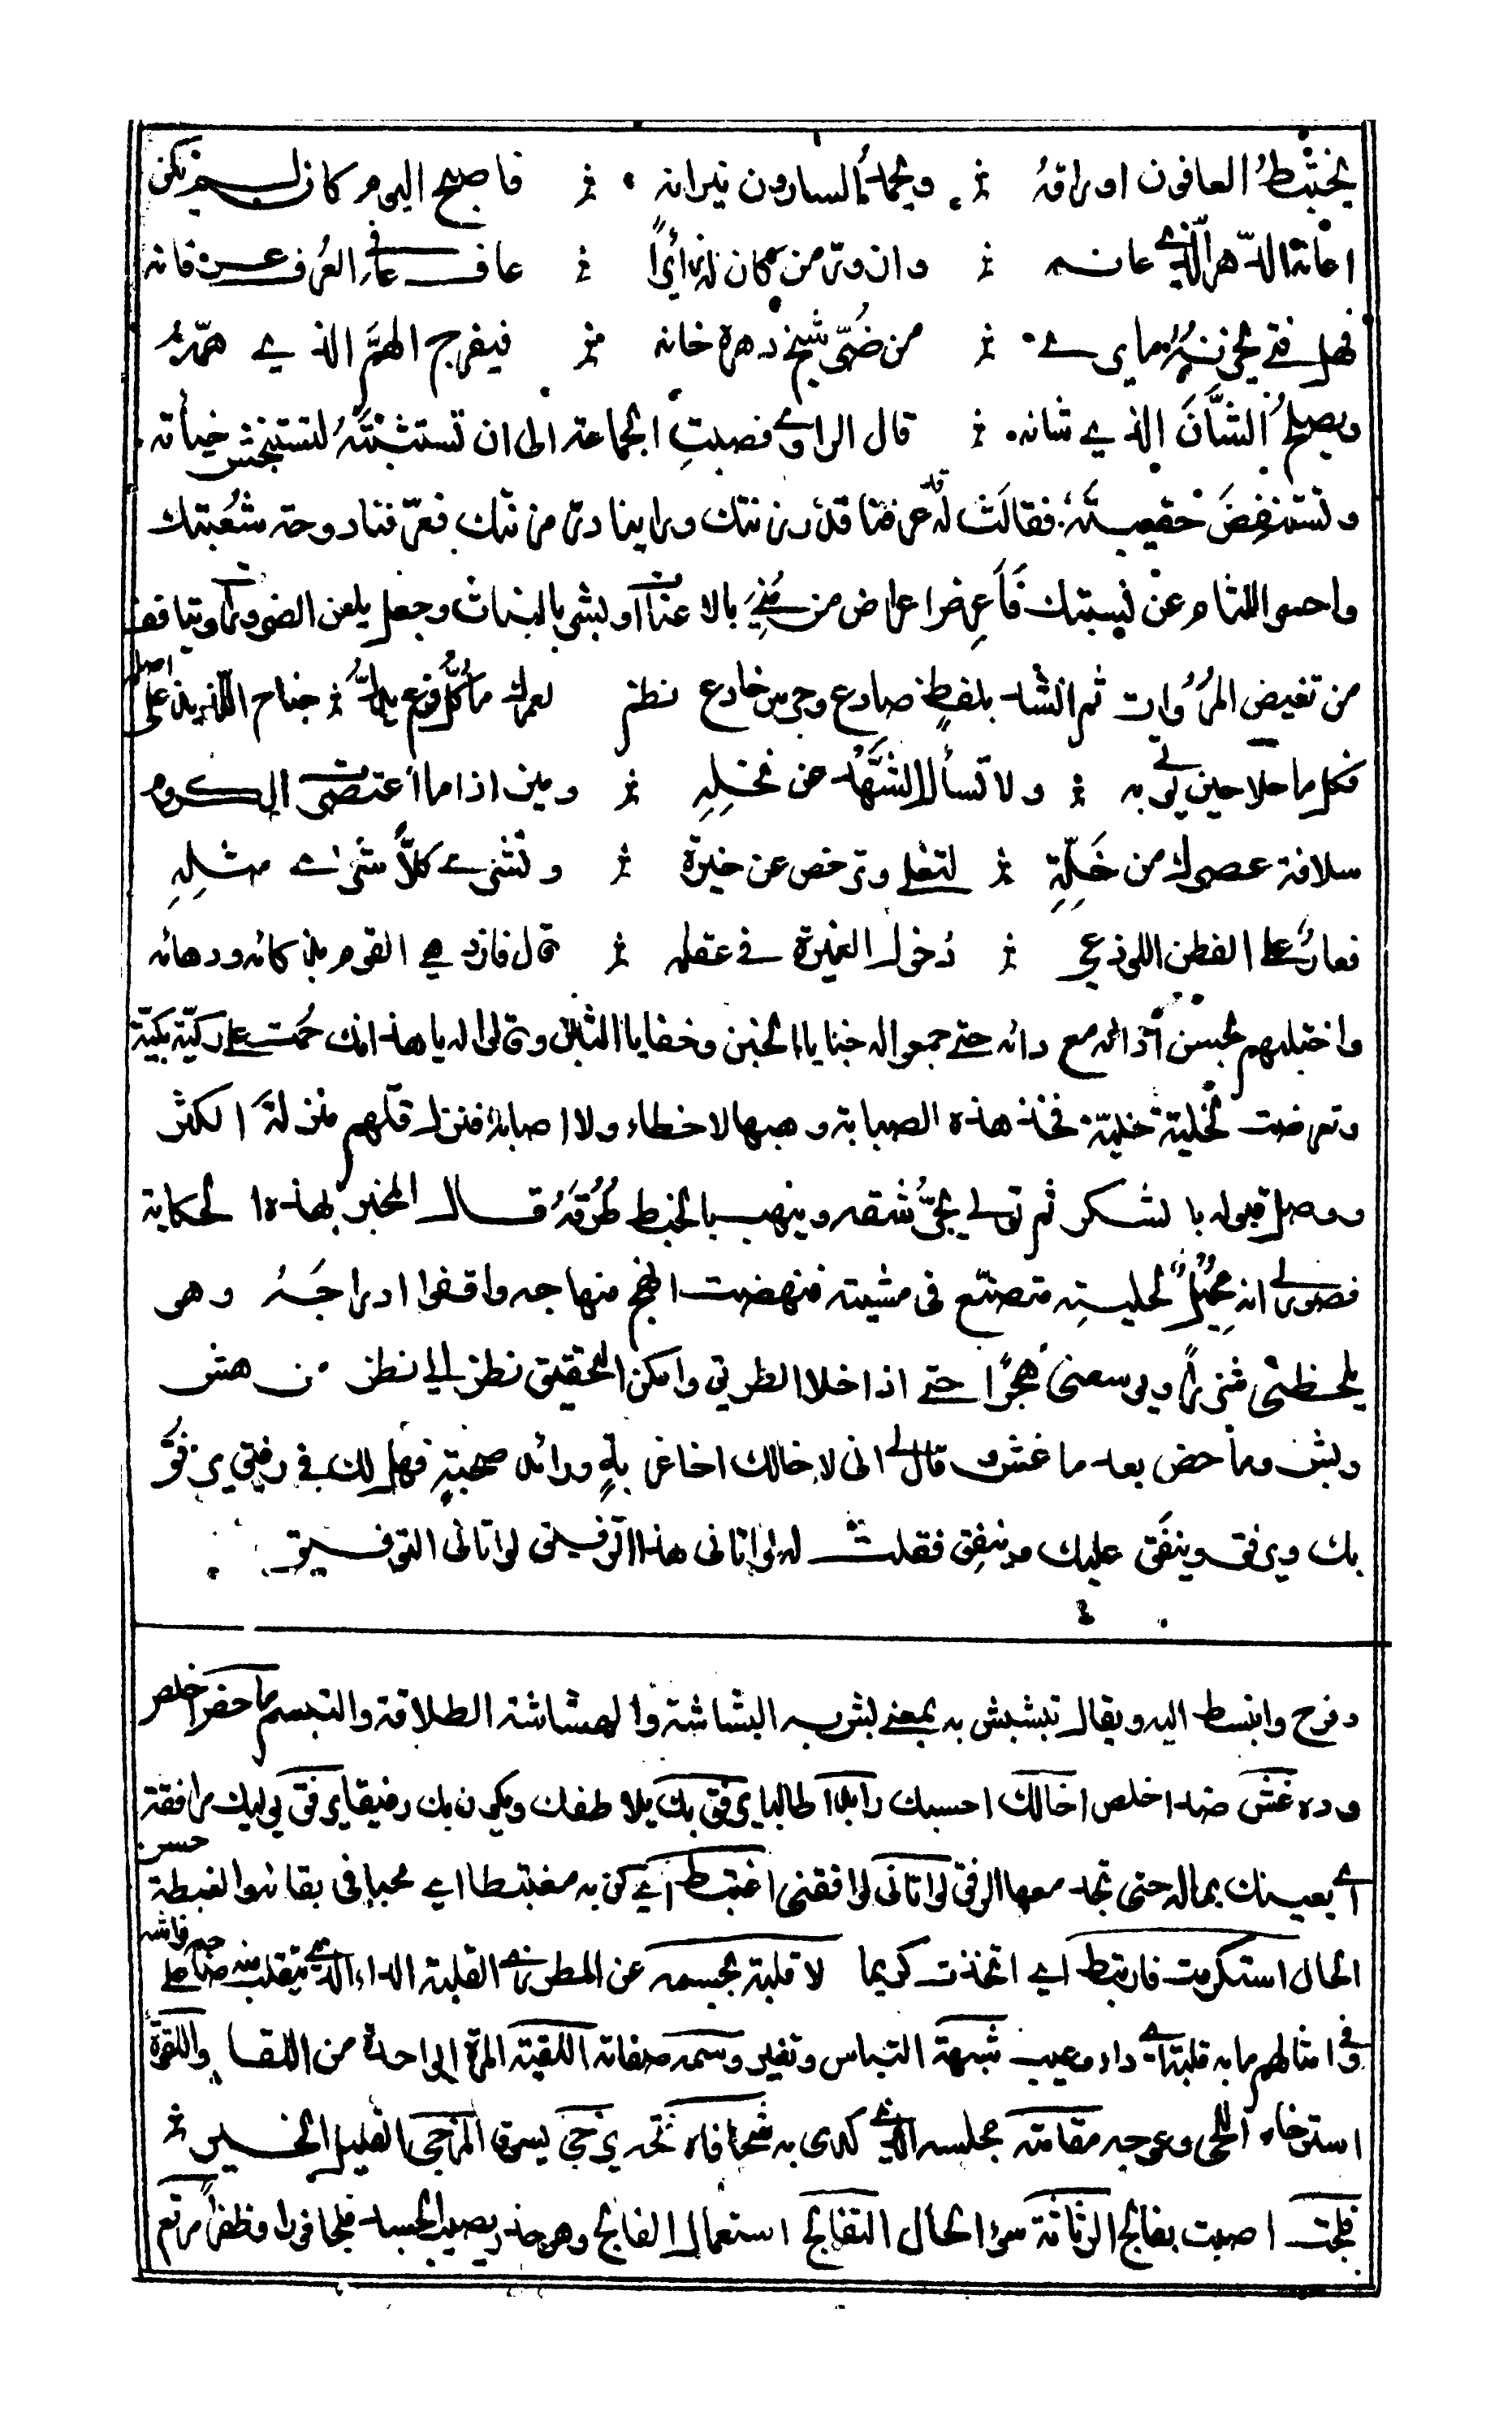 يختبط العافون اوراقه ۞ ويحمد السارون نيرانه ۞ فاصبح اليوم كان لم يكن
اعانه الدهر الذي عانه ۞ وازور من كان له زائرا ۞ وعاف عافي العرف عرفانه
فهل فتى يحزنه ما يرى ۞ من ضر شيخ دهره خانه ۞ فيفرج الهم الذي همه
ويصلح الشان الذي شانه ۞ قال الراوي فصبت الجماعة الى ان تستثبته لتستنجش خبأته
وتستنفض حقيبته فقالت له قد عرفنا قدر رتبتك وراينا در مزنتك فعرفنا دوحة شعبتك
واحسر اللثام عن نسبتك فاعرض اعراض من مني بالاعنات او بشر بالبنات وجعل يلعن الضرورات ويتافف
من تغيض المروات ثم انشد بلفظ صادع وجرس خادع نظم لعمرك ما كل فرع يدل ۞ جناه اللذيذ على اصله
فكل ما حلا حين يوتى به ۞ ولا تسأل الشهد عن نحله ۞ وميز اذا ما اعتصرت الكروم
سلافة عصرك من خله ۞ لتغلي وترخص عن خبرة ۞ وتشري كلا شرى مثله
فعار على الفطن اللوذعي ۞ دخول الغميزة في عقله ۞ قال فازدهى القوم بذكائه ودهائه
واختلبهم بحسن ادائه مع دائه حتى جمعوا له خبايا الخبن وخفايا الثبن وقالوا له يا هذا انك حمت على ركية بكية
وتعرضت لخلية خلية فخذ هذه الصبابة وهبها لا خطاء ولا اصابة فنزل قلهم منزلة الكثر
ووصل قبوله بالشكر ثم تولى يجر شقه وينهب بالخبط طرقه قال المخبر بهذه الحكاية
فصور لي انه محيل لحليته متصنع في مشيته فنهضت انهج منهاجه واقفوا ادراجه وهو
يلحظني شزرا ويوسعني هجرا حتى اذا خلا الطريق وامكن التحقيق نظر الي نظر من هش
وبش وماحض بعد ما غش وقال لي اني لاخالك اخا غربة ورائد صحبة فهل لك في رفيق يرفق
بك ويرفق وينفق عليك وينفق فقلت له لو اتاني هذا الرفيق لواتاني التوفيق
وفرح وانبسط اليه ويقال تبشبش به بمعنى بش به البشاشة والهشاشة الطلاقة والتبسم ماحض اخلص
وده غش ضد اخلص اخالك احسبك رائدا طالبا يرفق بك يلاطفك ويكون بك رفيقا يرفق يوليك مرافقة
اي يعينك بماله حتى تجد معها الرفق لواتاني لوافقني اغتبط اي كن به مغتبطا اي محبا في بقائه والغبطة حسن
الحال استكرمت فارتبط اي اتخذت كريما لا قلبة بجسمه عن المطرزي القلبة الداء الذي يتقلب منه صاحبه على فراشه
وفي امثالهم ما به قلبة اي داء وعيب شبهة التباس وتغير وسمه صفاته اللقية المرة الواحدة من اللقا واللقوة
استرخاء اللحي وعوجه مقامته مجلسه الذي كدى به شحا فاه فتحه يزجي يسوق المزجى القليل الخسيس ۞
فلجت اصبت بفالج الرثاثة سوء الحال التفالج استعمال الفالج وهو خدر يصيب الجسد فلجا فوزا وظفرا مرتع